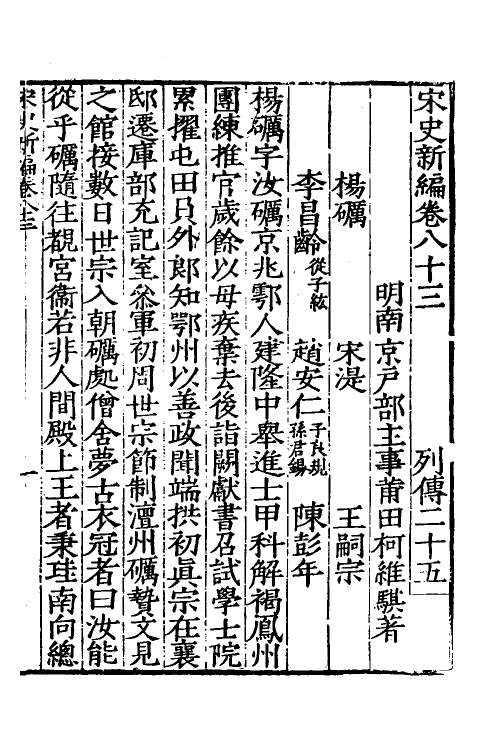 宋史新編卷八十三 列傳二十五
明南京戶部主事莆田柯維騏著
楊礪 宋湜 王嗣宗
李昌齡從子紘 趙安仁子良規孫君錫 陳彭年
楊礪字汝礪京兆鄠人建隆中舉進士甲科解褐鳳州
團練推官歲餘以母疾棄去後詣闕獻書召試學士院
累擢屯田員外郎知鄂州以善政聞端拱初眞宗在襄
邸遷庫部充記室參軍初周世宗節制澶州礪贄文見
之館接數日世宗入朝礪處僧舍夢古衣冠者曰汝能
從乎礪隨往覩宮衞若非人間殿上王者秉珪南向總
宋史新編卷八十三
一